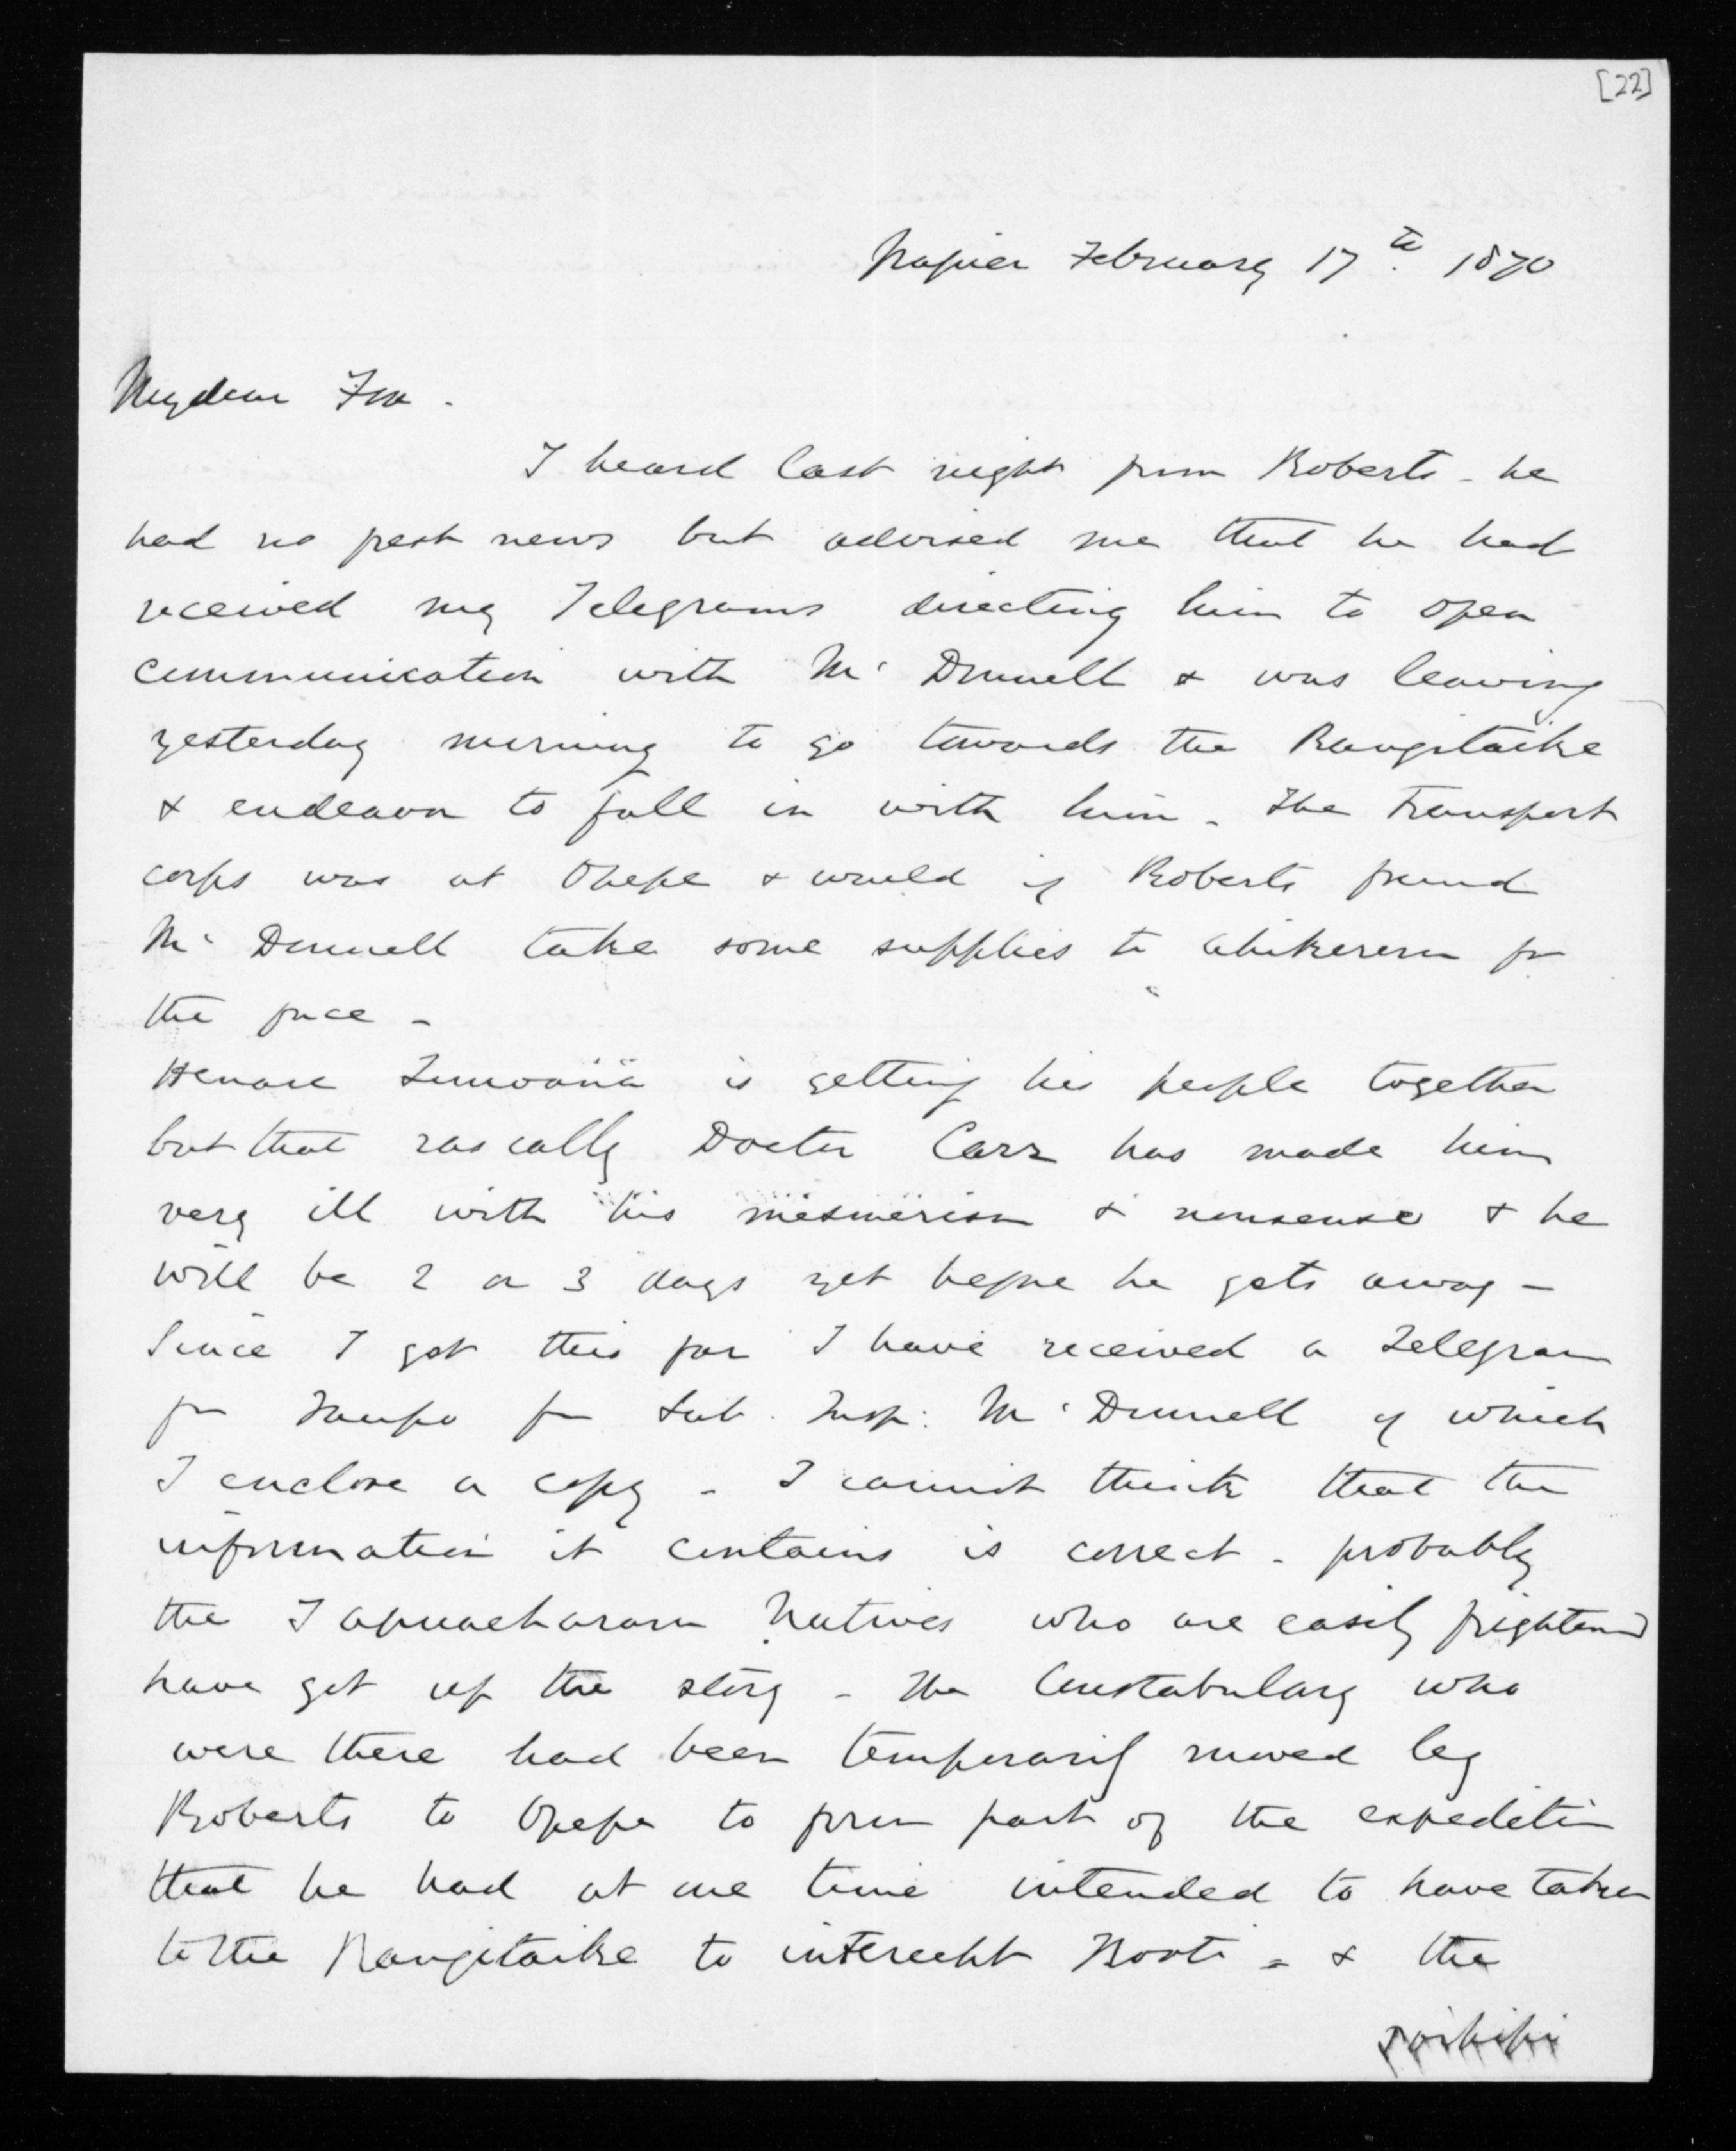 [22]
Napier February 17th. 1870
My dear Fox.
I heard last night from Roberts - he
had no fresh news but advised me that he had
received my Telegrams directing him to open
communication with McDonnell & was leaving
yesterday morning to go towards the Rangitaike
& endeavor to fall in with him. The Transport
corps was at Opepe & would if Roberts found
McDonnell take some supplies to Ahikereru for
the force -
Henare Tomoana is getting his people together
but that rascally Doctor Carr has made him
very ill with his mesmerism & nonsense & he
will be 2 or 3 days yet before he gets away -
Since I got this far I have received a Telegram
fm Taupo fm Sub. Insp: McDonnell of which
I enclose a copy - I cannot think that the
information it contains is correct - probably
the Tapuaeharuru Natives who are easily frightened
have got up the story - The Constabulary who
were there had been temporarily moved by
Roberts to Opepe to form part of the expedition
that he had at one time intended to have taken
to the Rangitaike to intercept Kooti - & the
Poihipi